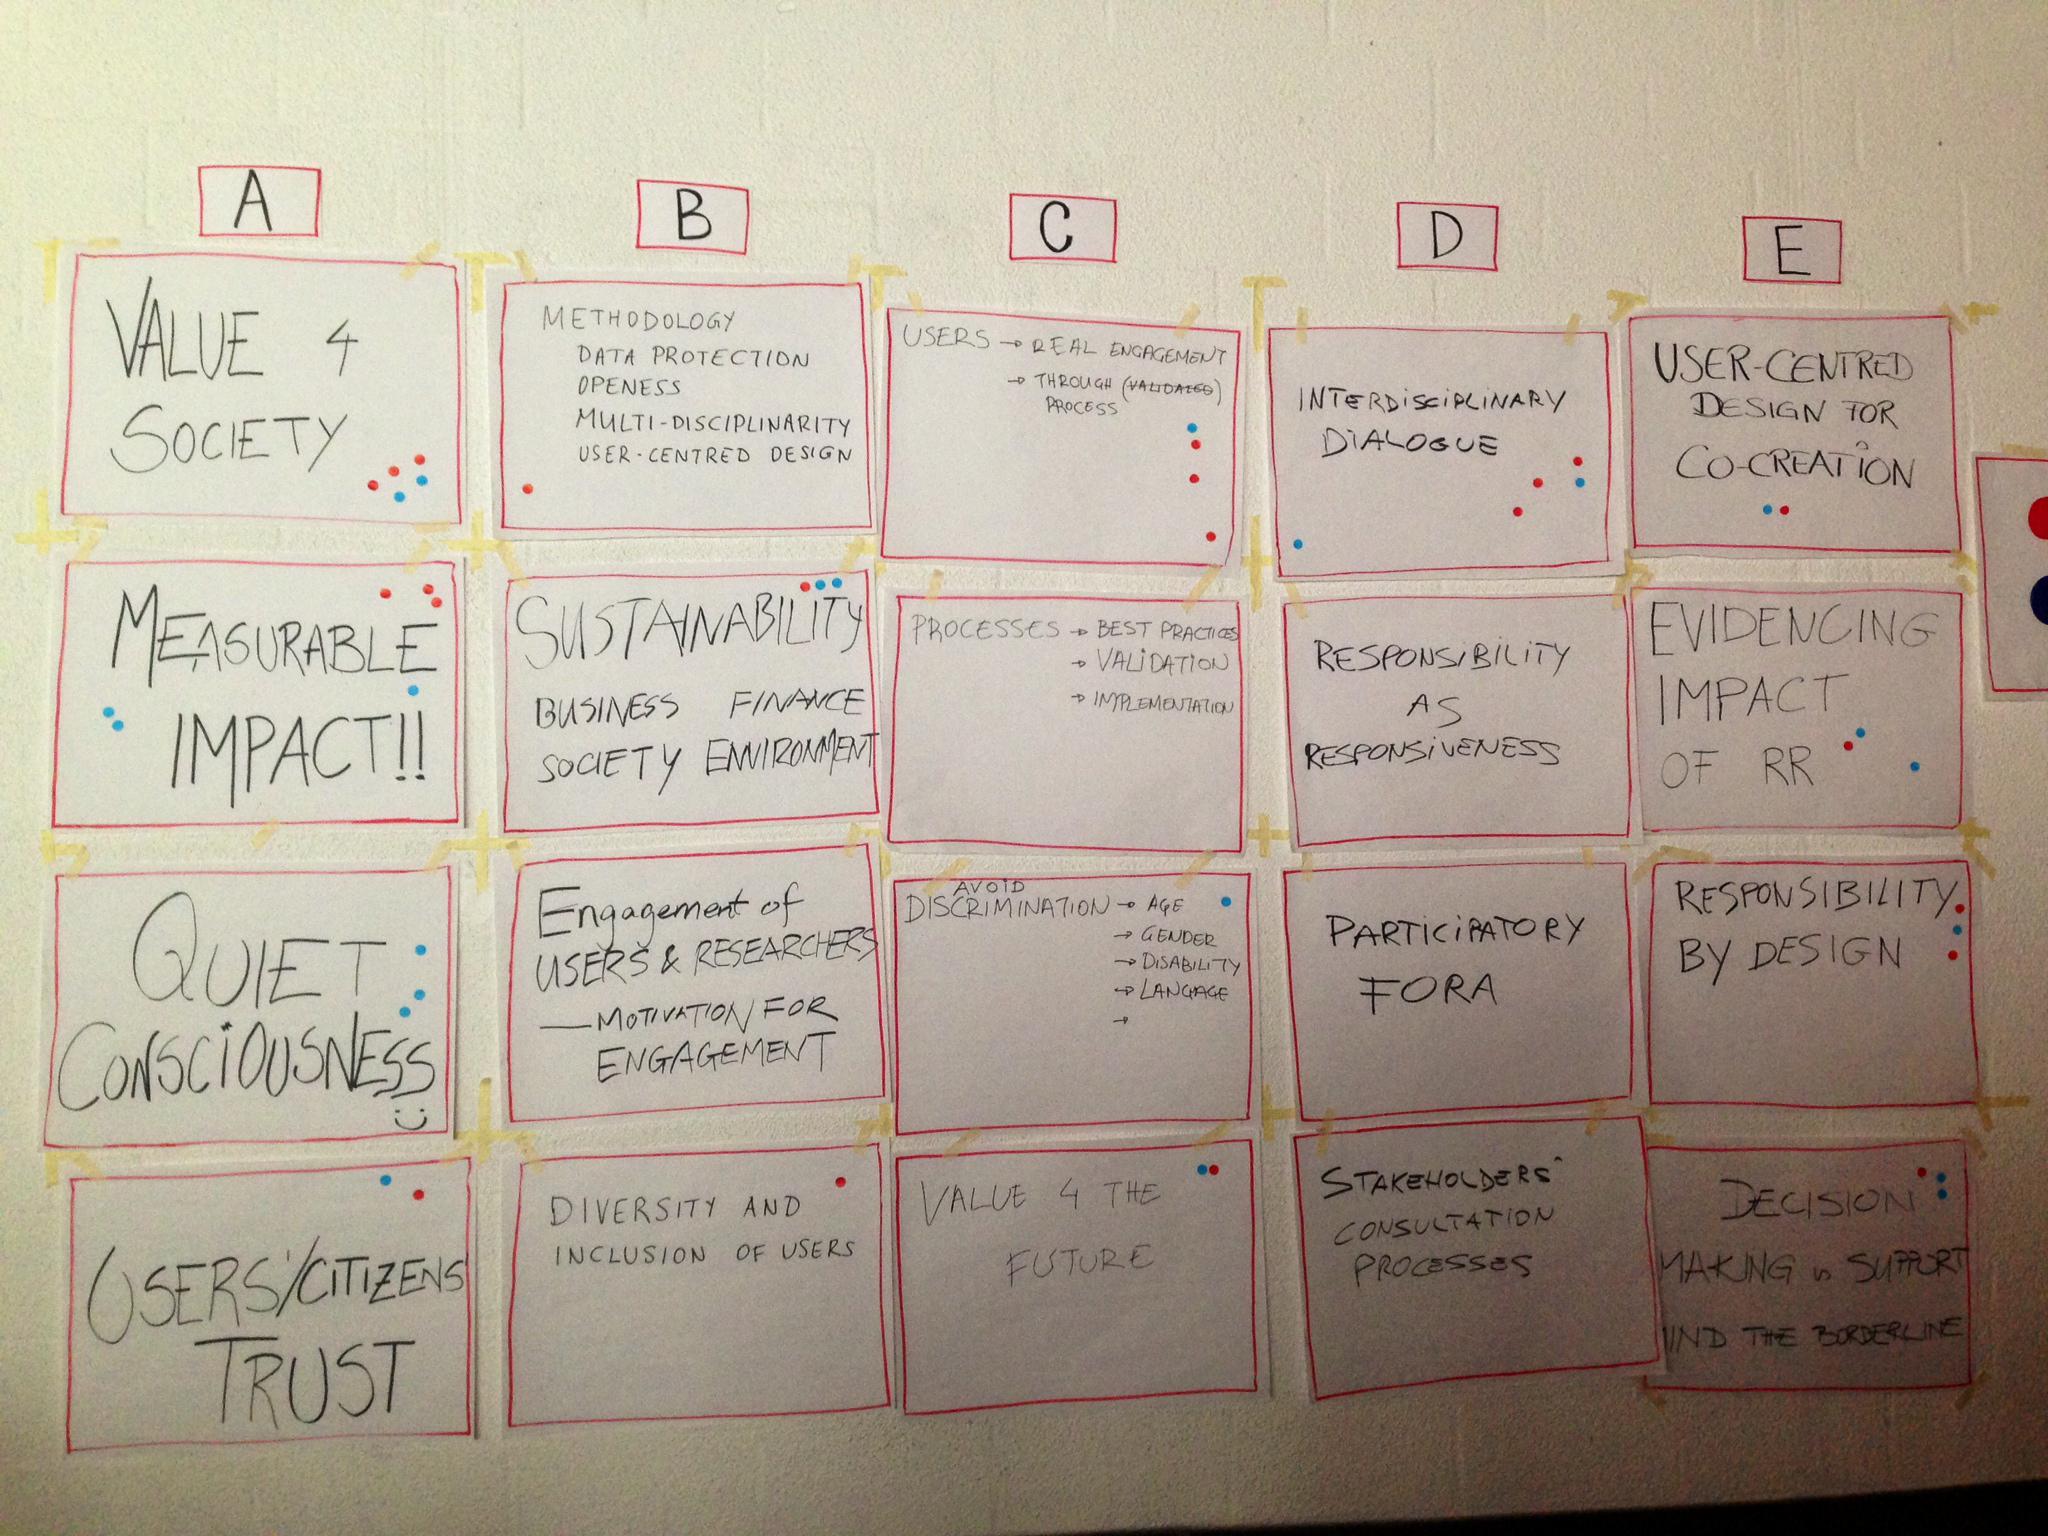 A
VALUE 4
SOCIETY
MEASURABLE
IMPACT!!
QUIET
CONSCIOUSNESS
USERS'/CITIZENS
TRUST
B
METHODOLOGY
DATA PROTECTION
OPENESS
MULTI-DISCIPLINARITY
USER-CENTRED DESIGN
SUSTAINABILITY
BUSINESS FINANCE
SOCIETY ENVIRONMENT
Engagement of
USERS & RESEARCHERS
— MOTIVATION FOR
ENGAGEMENT
DIVERSITY AND
INCLUSION OF USERS
C
USERS → REAL ENGAGEMENT
→ THROUGH (VALIDATED)
PROCESS
PROCESSES → BEST PRACTICES
→ VALIDATION
→ IMPLEMENTATION
AVOID
DISCRIMINATION → AGE
→ GENDER
→ DISABILITY
→ LANGUAGE
→
VALUE 4 THE
FUTURE
D
INTERDISCIPLINARY
DIALOGUE
RESPONSIBILITY
AS
RESPONSIVENESS
PARTICIPATORY
FORA
STAKEHOLDERS'
CONSULTATION
PROCESSES
E
USER-CENTRED
DESIGN FOR
CO-CREATION
EVIDENCING
IMPACT
OF RR
RESPONSIBILITY
BY DESIGN
DECISION
MAKING vs SUPPORT
MIND THE BORDERLINE